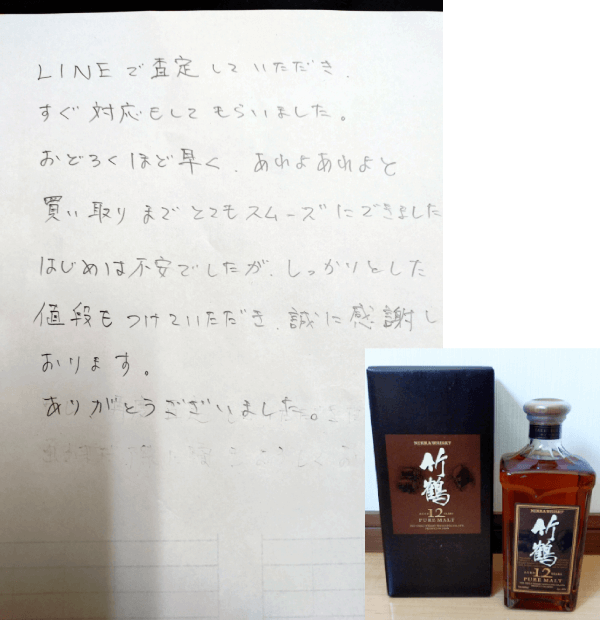 LINEで査定していただき、
すぐ対応もしてもらいました。
おどろくほど早く、あれよあれよと
買い取りまでとてもスムーズにできました
はじめは不安でしたが、しっかりとした
値段もつけていただき、誠に感謝し
おります。
ありがとうございました。
NIKKA WHISKY
竹鶴
AGED 12 YEARS
PURE MALT
NIKKA WHISKY
竹鶴
AGED 12 YEARS
PURE MALT